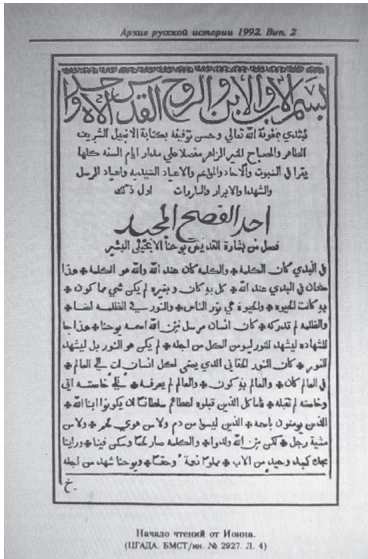 Архив русской истории 1992. Вып. 2
بسم الاب والابن والروح القدس الاه واحد
نبتدي بمعونة الله تعالي وحسن توفيقه بكتابة الانجيل الشريف
الطاهر والمصباح المنير الزاهر مفصلا علي مدار ايام السنه كلها
يقرا في السبوت والآحاد والمواسم والاعياد السيديه واعياد الرسل
والشهدا والابرار والبارات اول ذلك
احد الفصح المجيد
فصل من بشارة القديس يوحنا الانجيلي البشير
في البدي كان الكلمة * والكلمة كان عند الله والله هو الكلمة * هذا
كان في البدي عند الله * كل به كان وبغيره لم يكن شي مما كون *
به كانت الحيوة * والحيوة هي نور الناس * والنور في الظلمة اضا *
والظلمة لم تدركه * كان انسان مرسل من الله اسمه يوحنا * هذا جا
للشهاده ليشهد للنور ليومن الكل من اجله * لم يكن هو النور بل ليشهد
للنور * كان النور الحقاني الذي يضي لكل انسان ات الي العالم *
في العالم كان * والعالم به كون * والعالم لم يعرفه * الي خاصته اتي
وخاصته لم تقبله * فاما كل الذين قبلوه اعطاهم سلطانا ان يكونوا ابنا الله *
الذين يومنون باسمه * الذين ليسوا من دم ولا من هوي لحم * ولا من
مشية رجل * لكن من الله ولدوا * والكلمة صار لحما * وسكن فينا * وراينا
مجده كمجد وحيد من الاب * مملوا نعمة وحقا * ويوحنا شهد من اجله
Начало чтений от Иоанна.
(ЦГАДА. БМСТ/ин. № 2927. Л. 4)